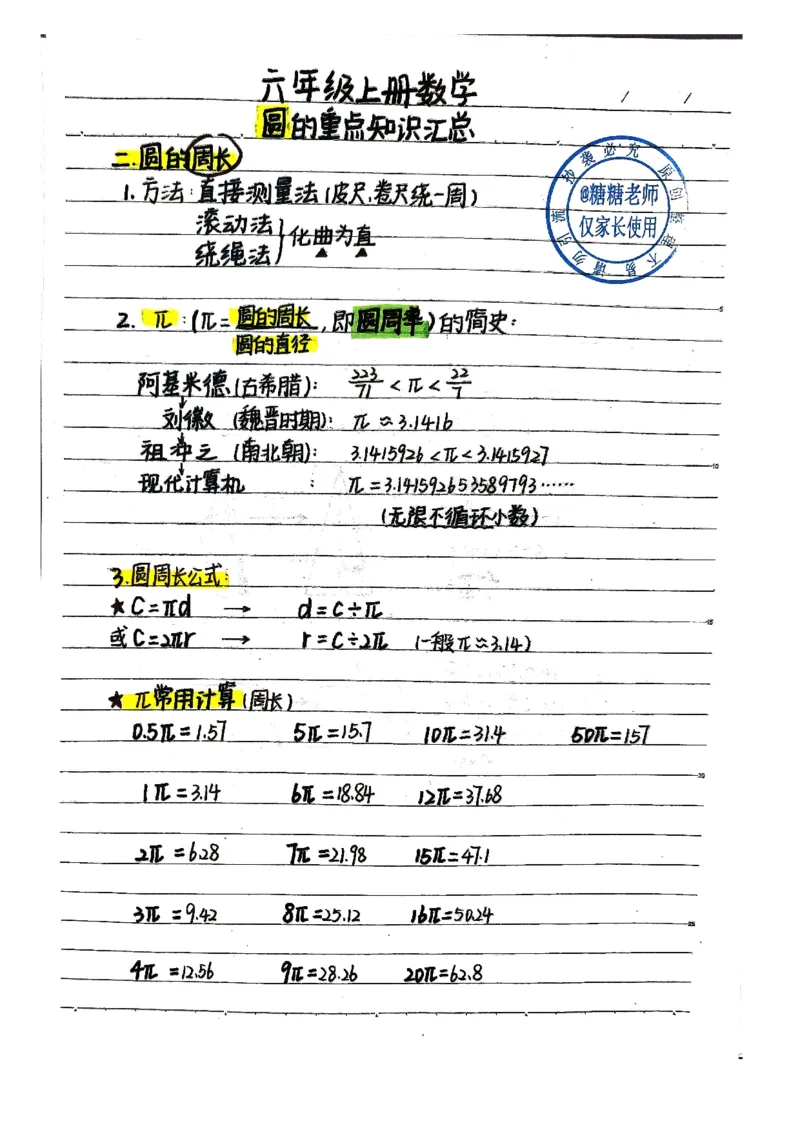 六年级上册数学
圆的重点知识汇总
二.圆的周长
1.方法:直接测量法(皮尺、卷尺绕一周)
滚动法
绕绳法
化曲为直
抄袭必究 原创整理不易请勿引流
@糖糖老师
仅家长使用
2. π:(π=圆的周长/圆的直径,即圆周率)的简史:
阿基米德(古希腊): 223/71<π<22/7
↓
刘徽(魏晋时期): π≈3.1416
↓
祖冲之(南北朝): 3.1415926<π<3.1415927
↓
现代计算机 : π=3.141592653589793……
(无限不循环小数)
3.圆周长公式:
★C=πd → d=C÷π
或C=2πr → r=C÷2π (一般π≈3.14)
★π常用计算(周长)
0.5π=1.57 5π=15.7 10π=31.4 50π=157
1π=3.14 6π=18.84 12π=37.68
2π=6.28 7π=21.98 15π=47.1
3π=9.42 8π=25.12 16π=50.24
4π=12.56 9π=28.26 20π=62.8